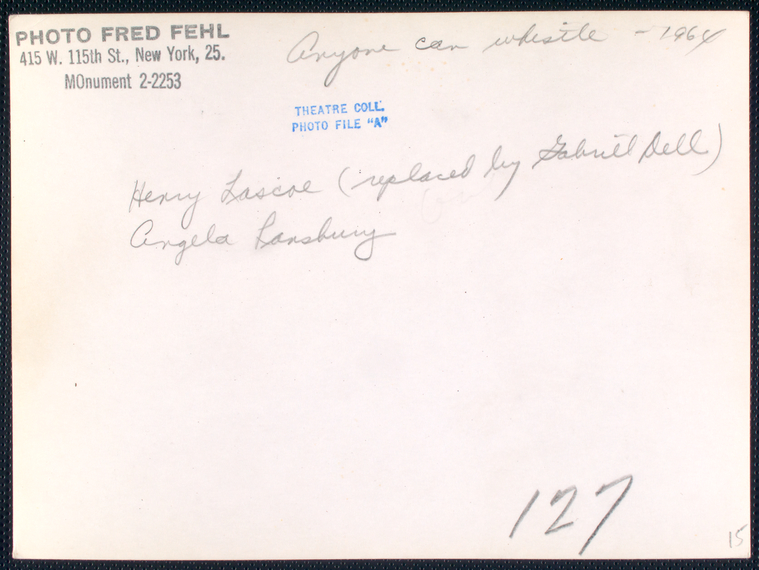 PHOTO FRED FEHL
415 W. 115th St., New York, 25.
MOnument 2-2253
Anyone can whistle - 1964
THEATRE COLL.
PHOTO FILE "A"
Henry Lascoe (replaced by Gabriel Dell)
Angela Lansbury
127
15